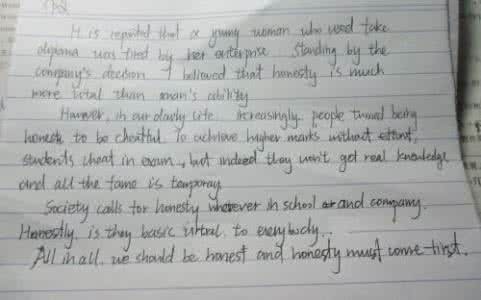 It is reported that a young woman who used fake
diploma was fired by her enterprise. Standing by the
company's decision, I believed that honesty is much
more vital than man's ability.
However, in our daily life, increasingly people turned being
honest to be cheatful. To achieve higher marks without effort,
students cheat in exam, but indeed they won't get real knowledge
and all the fame is temporay.
Society calls for honesty wherever in school and company.
Honestly, is they basic to everybody.
All in all, we should be honest and honesty must come first.